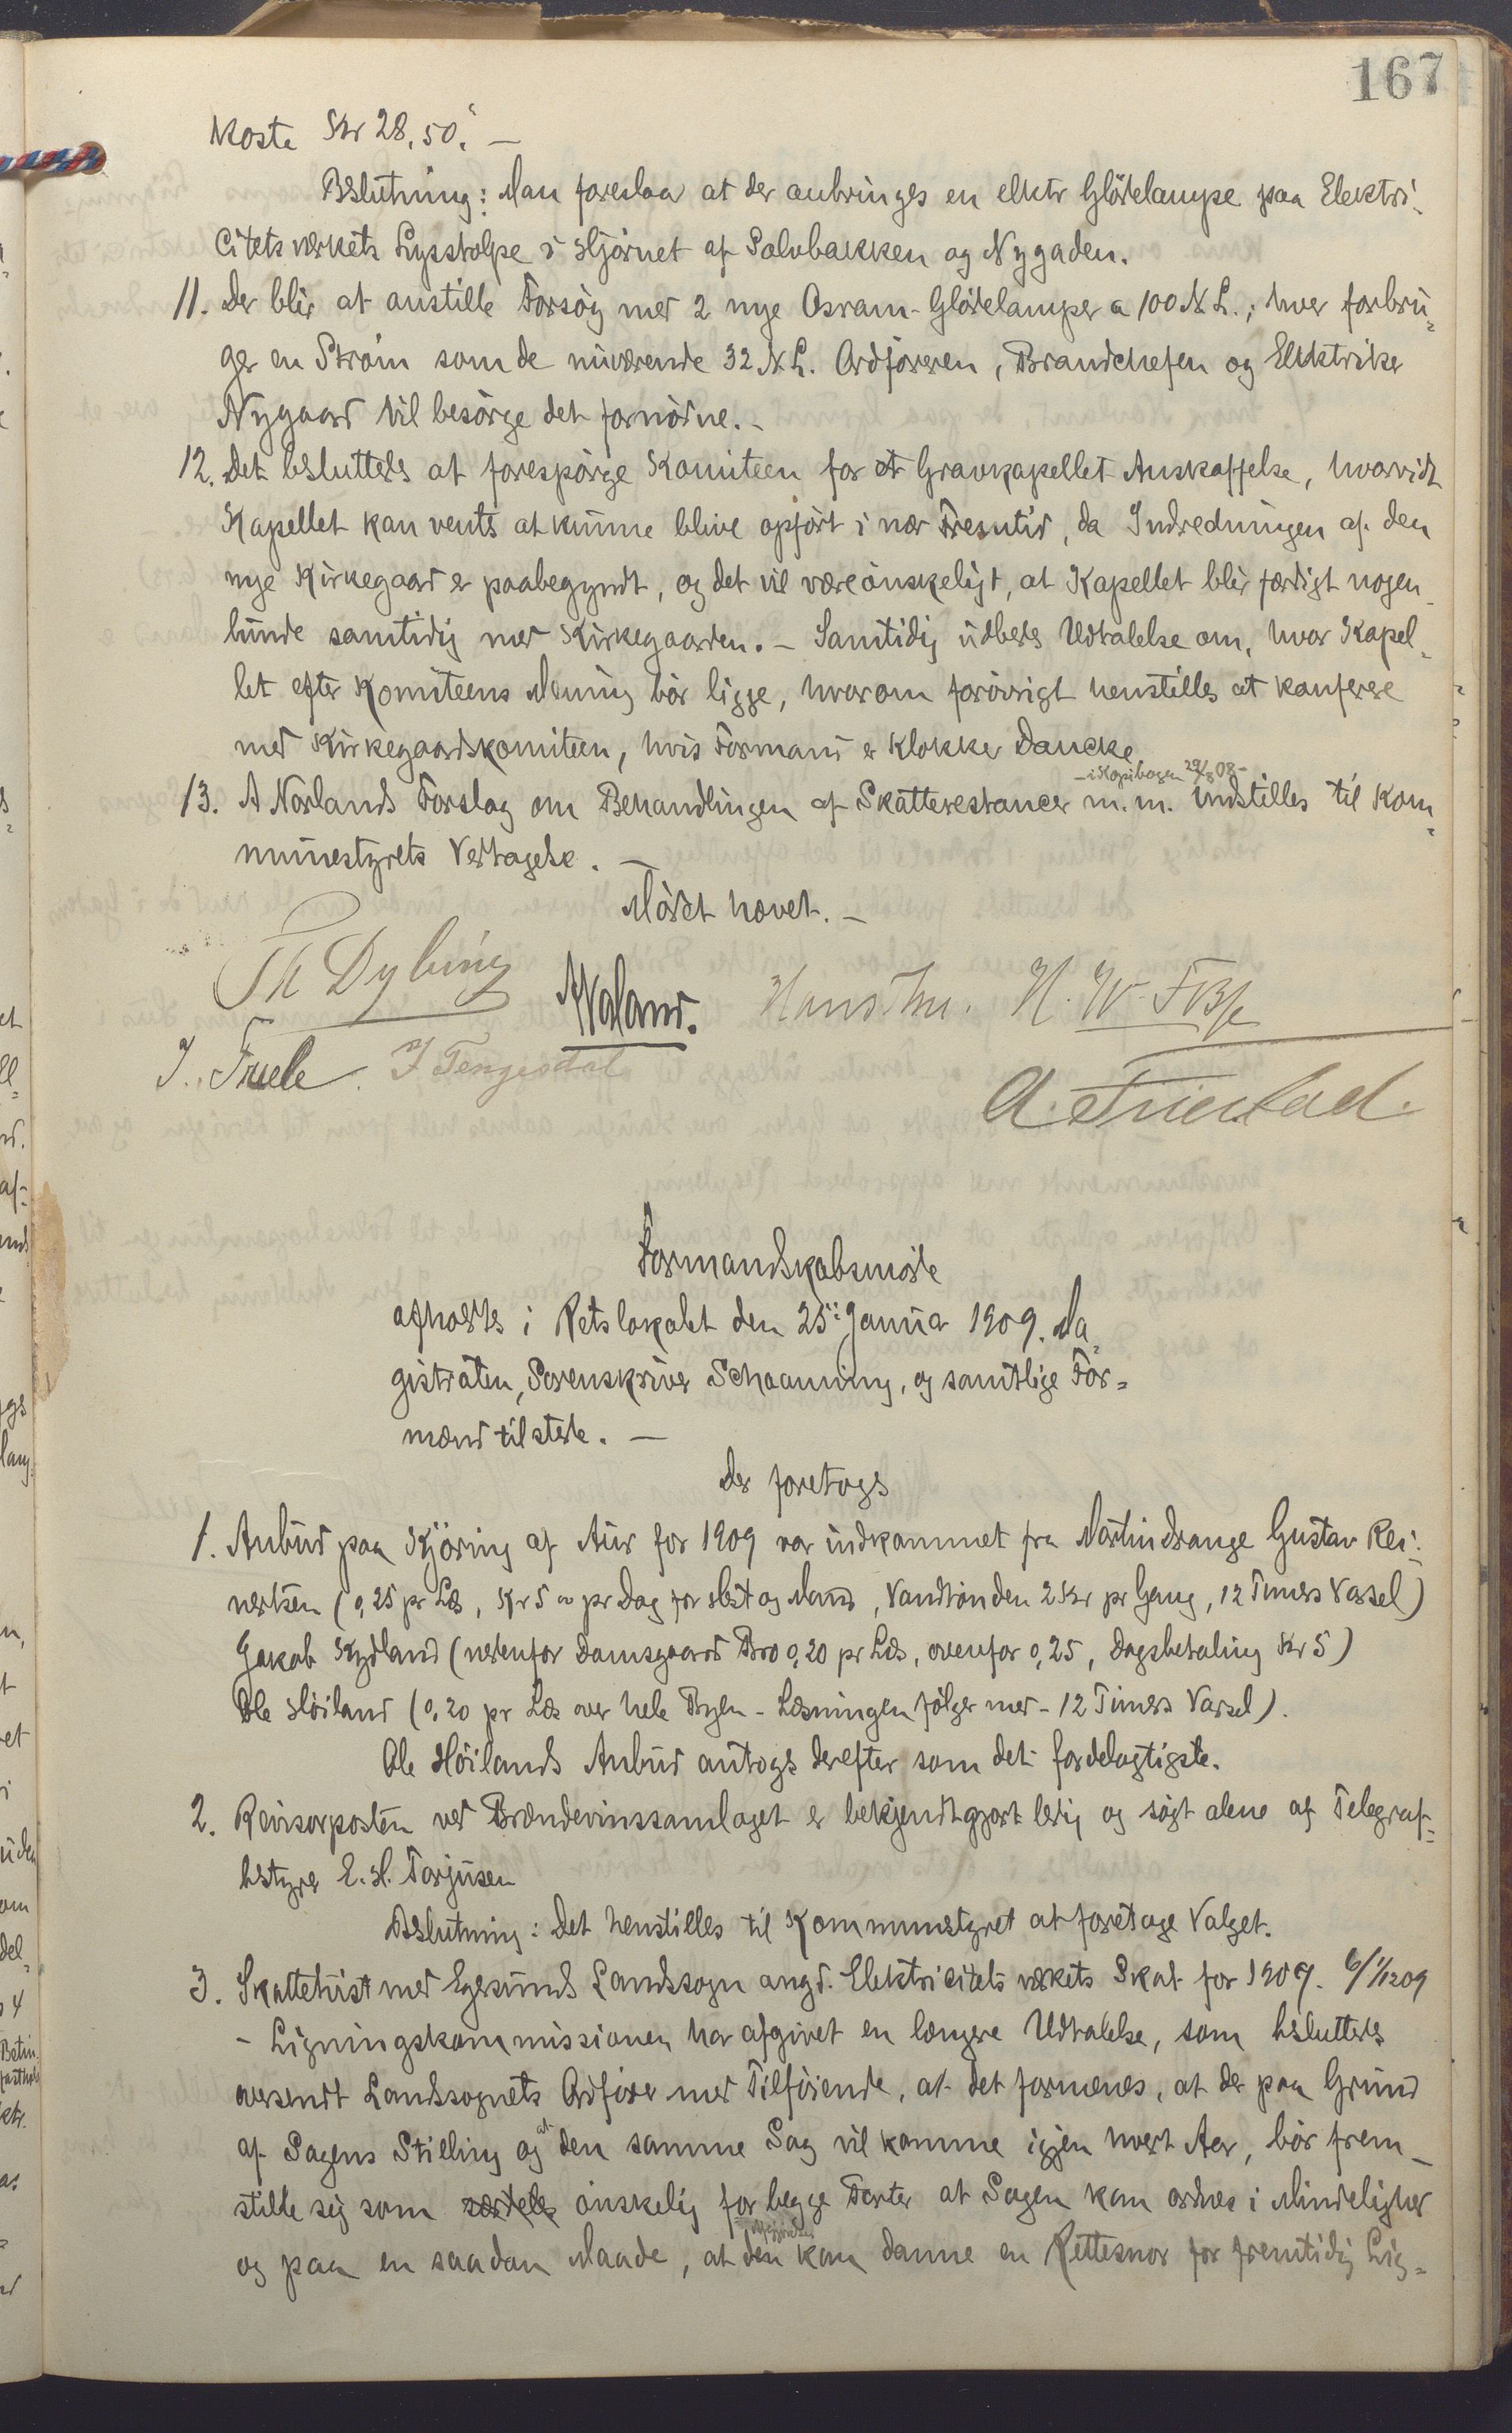 167
koste Kr 28.50. –
Beslutning: Man foreslaa at der anbringes en elektr Glödelampe paa Elektri-
citetsværkets Lysstolpe i Hjörnet af Salvbakken og Nygaden.
11. Der blir at anstille Forsög med 2 nye Osram-Glödelamper a 100 N.L.; hver forbru-
ger en Ström som de nuværende 32 N.L. Ordföreren, Brandchefen og Elektriker
Nygaard til besörge det fornödne. –
12. Det besluttedes at forespörge Komiteen for et Gravkapellet Anskaffelse, hvorvidt
Kapellet kan ventes at kunne blive opfört i nær Fremtid, da Indredningen af den
nye Kirkegaard er paabegyndt, og det vil være önskeligt, at Kapellet blir færdigt nogen-
lunde samtidig med Kirkegaarden. – Samtidig udbedes Udtalelse om, hvor Kapel-
let efter Komiteens Mening bör ligge, hvorom forövrigt henstilles at konferere
med Kirkegaardskomiteen, hvis Formand er Klokker Dancke
– i Kopibogen 29/8 08 –
13. A Norlands Forslag om Behandlingen af Skatterestancer m.m. indstilles til Kom-
munestyrets Vedtagelse. –
Mödet hævet. –
Th Dybing
J. Friele. J Tengesdal
A. Friestad.
Formandskabsmöde
afholdtes i Retslokalet den 25: Januar 1909. Ma-
gistraten, Sorenskriver Schaanning, og samtlige For-
mænd tilstede. –
Der foretoges
1. Anbud paa Kjöring af Aur for 1909 var indkommet fra Martin Drange Gustav Rei-
nertsen (0,25 pr Læs, Kr 5 00 pr Dag for Hest og Mand, Vandtönden 2 Kr pr Gang, 12 Timers Varsel)
Jakob Kydland (nedenfor Damsgaards Bro 0,20 pr Læs, ovenfor 0,25, Dagsbetaling Kr 5)
Ole Höiland (0,20 pr Læs over hele Byen – Læsningen fölger med – 12 Timers Varsel).
Ole Höilands Anbud antoges derefter som det fordelagtigste.
2. Revisorposten ved Brændevinssamlaget er bekjendtgjort ledig og sögt alene af Telegraf-
bestyrer E. H. Torjusen
Beslutning: Det henstilles til Kommunestyret at foretage Valget.
3. Skattetvist med Egersunds Landssogn angd. Elektricitetsværkets Skat for 1909.
– Ligningskommissionen har afgivet en længere Udtalelse, som besluttedes
oversendt Landsognets Ordförer med Tilföiende, at det formenes, at der paa Grund
af Sagens Stilling og at den samme Sag vil komme igjen hvert Aar, bör frem-
stille sig som særdeles önskelig for begge Parter at Sagen kan ordnes i Mindelighed
og paa en saadan Maade, at den Afgjörelse kan danne en Rettesnor for fremtidig Lig-